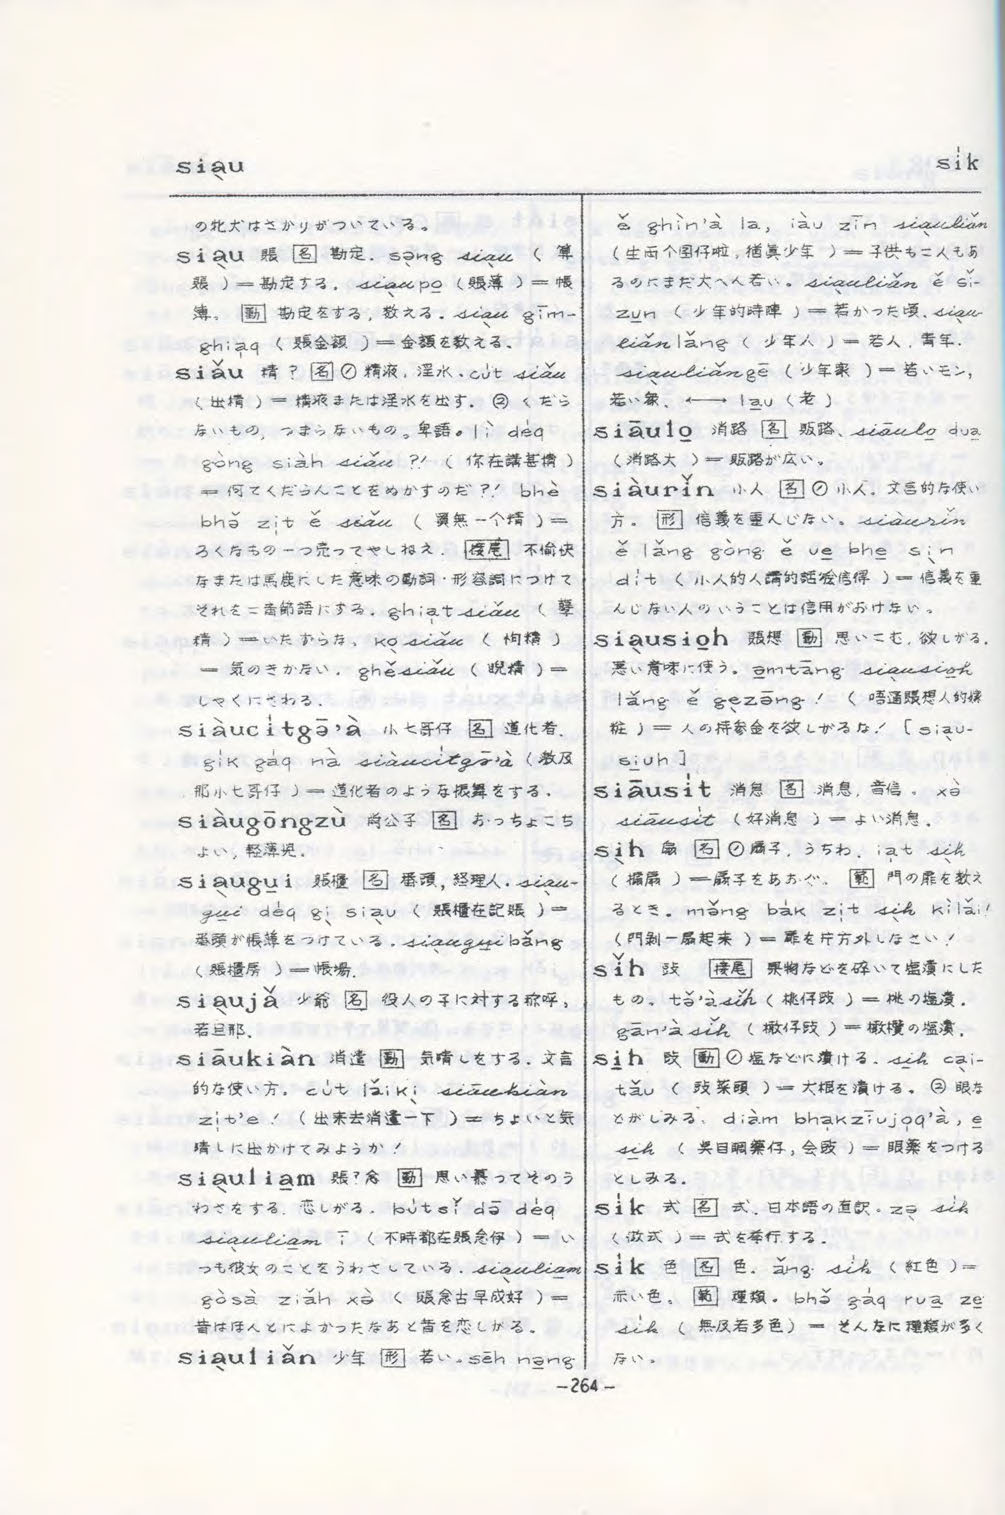 sia̱u
si̍k
の牝犬はさかりがついている。
siạu 賬 名 勘定. sə̣ng siạu ( 算
賬 )=勘定する. siạupo̱ (賬薄)=帳
簿。 動 勘定をする, 数える. siạu gīm-
ghiạq ( 賬金額 )=金額を数える.
siǎu 精 ? 名 ① 精液. 淫水. cu̍t siǎu
( 出精 )=精液または淫水を出す. ② くだら
ないもの, つまらないもの。卑語. lì de̍q
gòng siàh siǎu ?! ( 你在講甚精 )
=何てくだらんことをぬかすのだ?! bhè
bhə̌ zịt ě siǎu ( 買無一个精 )=
ろくなもの一つ売ってやしねえ. 接尾 不愉快
なまたは馬鹿にした意味の動詞·形容詞につけて
それを二音節語にする. ghiạt siǎu ( 孽
精 )=いたずらな. kọ siǎu ( 怐精 )
= 気のきかない. ghě siǎu ( 睨精 )=
しゃくにさわる.
siàuci̍tgə̄'à 小七哥仔 名 道化者.
gi̍k ga̍q nà siàuci̍tgə̄'à (激及
那小七哥仔 )=道化者のような振舞をする.
siàugōngzù 尚公子 名 おっちょこち
ょい, 軽薄児.
siạugu̱i 賬櫃 名 番頭, 経理人. siạu-
gu̱i de̍q gị siạu ( 賬櫃在記賬 )=
番頭が帳簿をつけている. siạugu̱ibǎng
( 賬櫃房 )=帳場.
siạujǎ 少爺 名 役人の子に対する称呼,
若旦那.
siāukiàn 消遣 動 気晴しをする. 文言
的な使い方. cu̍t lǎikị siāukiàn
zịt'e ! ( 出来去消遣一下 )=ちょいと気
晴しに出かけてみようか!
siạulia̱m 賬?念 動 思い慕ってそのう
わさをする. 恋しがる. bu̍tsǐ də̄ de̍q
siạulia̱m ī ( 不時都在賬念伊 )=い
つも彼女のことをうわさしている. siạulia̱m
gòsà ziǎh xə̀ ( 賬念古早成好 )=
昔はほんとによかったなあと昔を恋しがる.
siạuliǎn 少年 形 若い. sēh nə̱ng
ě ghìn'à la, iàu zīn siạuliǎn
(生両个囝仔啦, 猶真少年 )=子供も二人もあ
るのにまだ大へん若い. siạuliǎn ě sǐ-
zu̱n ( 少年的時陣 )=若かった頃. siạu-
liǎnlǎng ( 少年人 )=若人, 青年.
siạuliǎngē (少年家 )=若いモン,
若い衆. ←→ la̱u (老)
siāulo̱ 消路 名 販路. siāulo̱ dua
(消路大 )=販路が広い.
siàurǐn 小人 名 ① 小人. 文言的な使い
方. 形 信義を重んじない. siàurǐn
ě lǎng gòng ě ue bhe sịn
di̍t (小人的人講的話𣍐信得 )=信義を重
んじない人のいうことは信用がおけない.
siạusio̱h 賬想 動 思いこむ. 欲しがる.
悪い意味に使う. əmtāng siạusio̱h
lǎng ě gẹzəng ! ( 唔通賬想人的嫁
粧 )=人の持参金を欲しがるな! [siau-
siuh]
siāusi̍t 消息 名 消息, 音信. xə̀
siāusi̍t (好消息 )=よい消息.
sịh 扇 名 ①扇子, うちわ. iạt sịh
( 搧扇 )=扇子をあおぐ. 範 門の扉を数え
るとき. mə̌ng ba̍k zịt sịh kìlǎi!
(門剝一扇起来 )=扉を片方外しなさい!
sǐh 豉 接尾 果物などを砕いて塩漬にした
もの. tə̌'à sǐh (桃仔豉 )=桃の塩漬.
gān'à sǐh ( 橄仔豉 )=橄欖の塩漬.
si̱h 豉 動 ①塩などに漬ける. si̱h cại-
tǎu ( 豉菜頭 )=大根を漬ける. ② 眼な
どがしみる. diàm bhạkzīujọq'à, e
si̱h ( 点目睭藥仔, 会豉 )=眼薬をつける
としみる.
si̍k 式 名 式. 日本語の直訳. zə si̍k
( 做式 )=式を挙行する.
si̍k 色 名 色. ǎng si̍k ( 紅色 )=
赤い色. 範 種類. bhə̌ ga̍q rua̱ ze̱
si̍k ( 無及若多色) = そんなに種類が多く
ない。
－264－